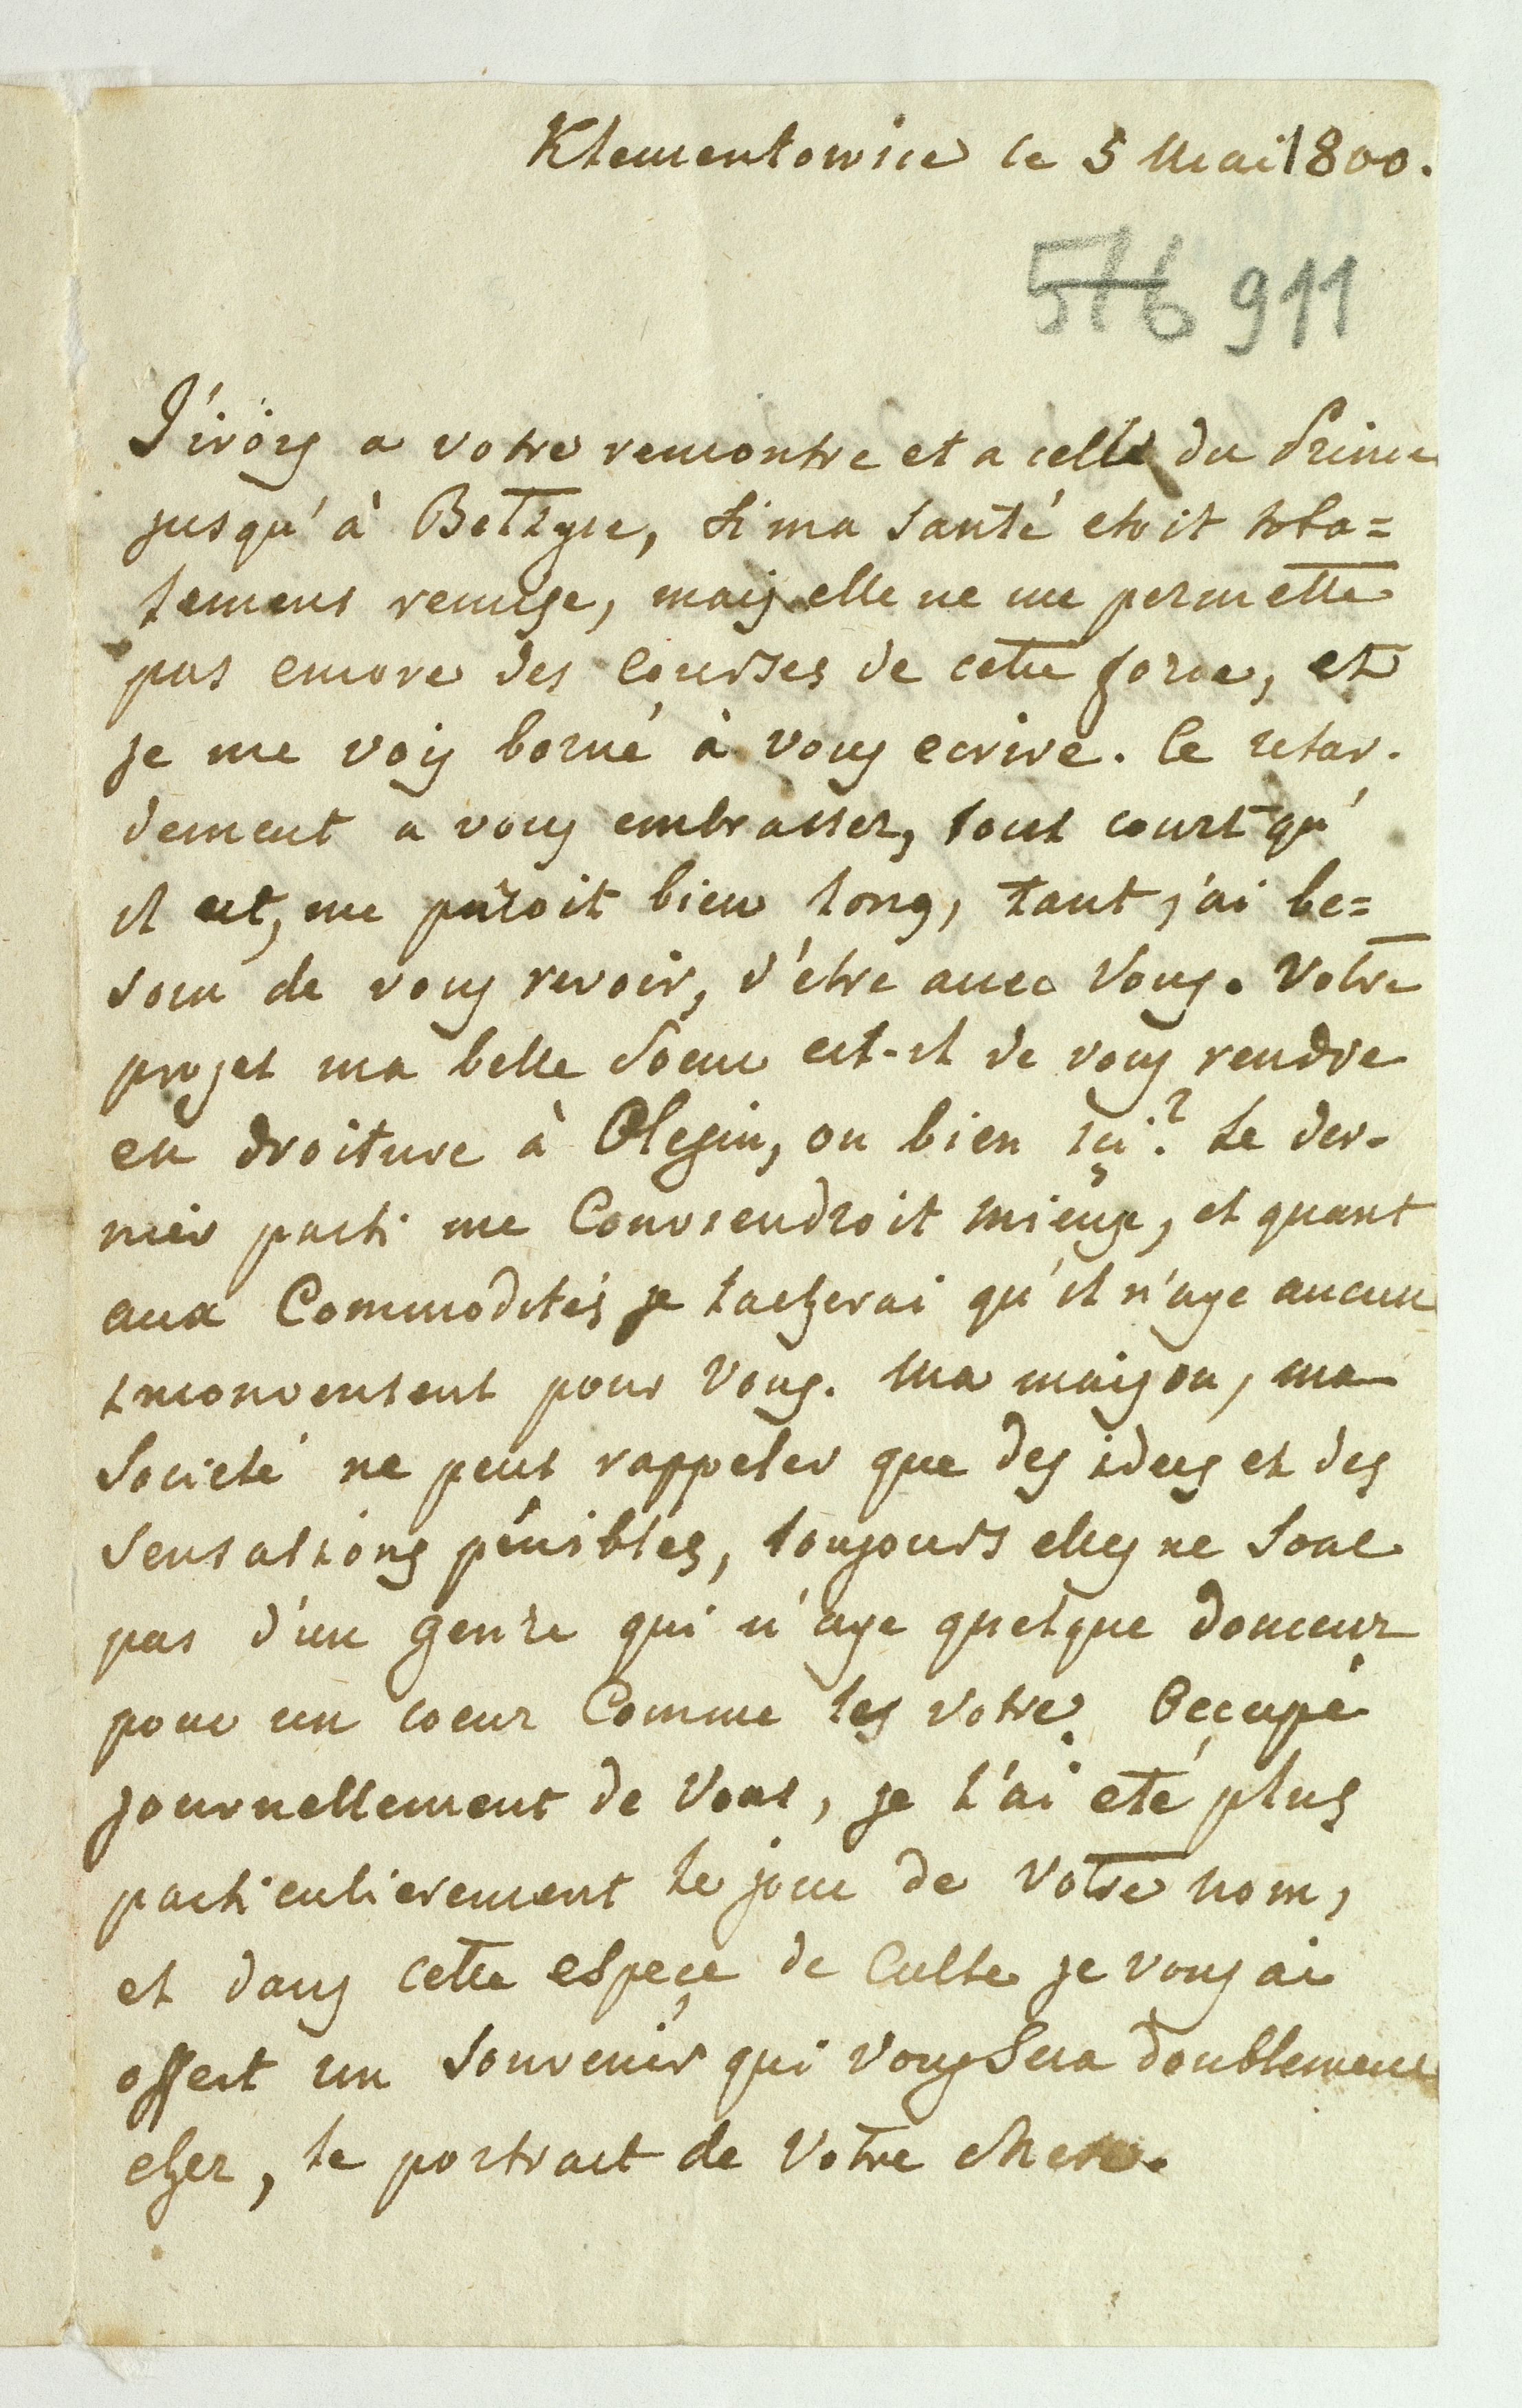 Klementowice le 5 Mai 1800.
576 911
J'irois a votre rencontre et a celle du Prince
jusqu'à Betzyce, si ma santé etoit tota=
lement remise, mais elle ne me permette
pas encore des courses de cette force, et
je me vois borné à vous ecrire. Ce retar-
dement a vous embrasser, tout court qu'
il est, me paroit bien long, tant j'ai be=
soin de vous revoir, d'etre avec Vous. Votre
projet ma belle Soeur est-il de vous rendre
en droiture à Olesin, ou bien ici? Le der-
nier parti me Conviendroit mieux, et quant
aux Commodités je tacherai qu'il n'aye aucun
inconvenient pour Vous. Ma maison, ma
Societé ne peut rappeler que des idees et des
Sensations pénibles, toujours elles ne sont
pas d'un genre qui n'aye quelque douceur
pour un coeur Comme les votre. Occupé
journellement de Vous, je l'ai eté plus
particulierement le jour de Votre nom,
et dans cette espece de Culte je vous ai
offert un Souvenir qui vous Sera doublement
cher, le portrait de Votre chere.